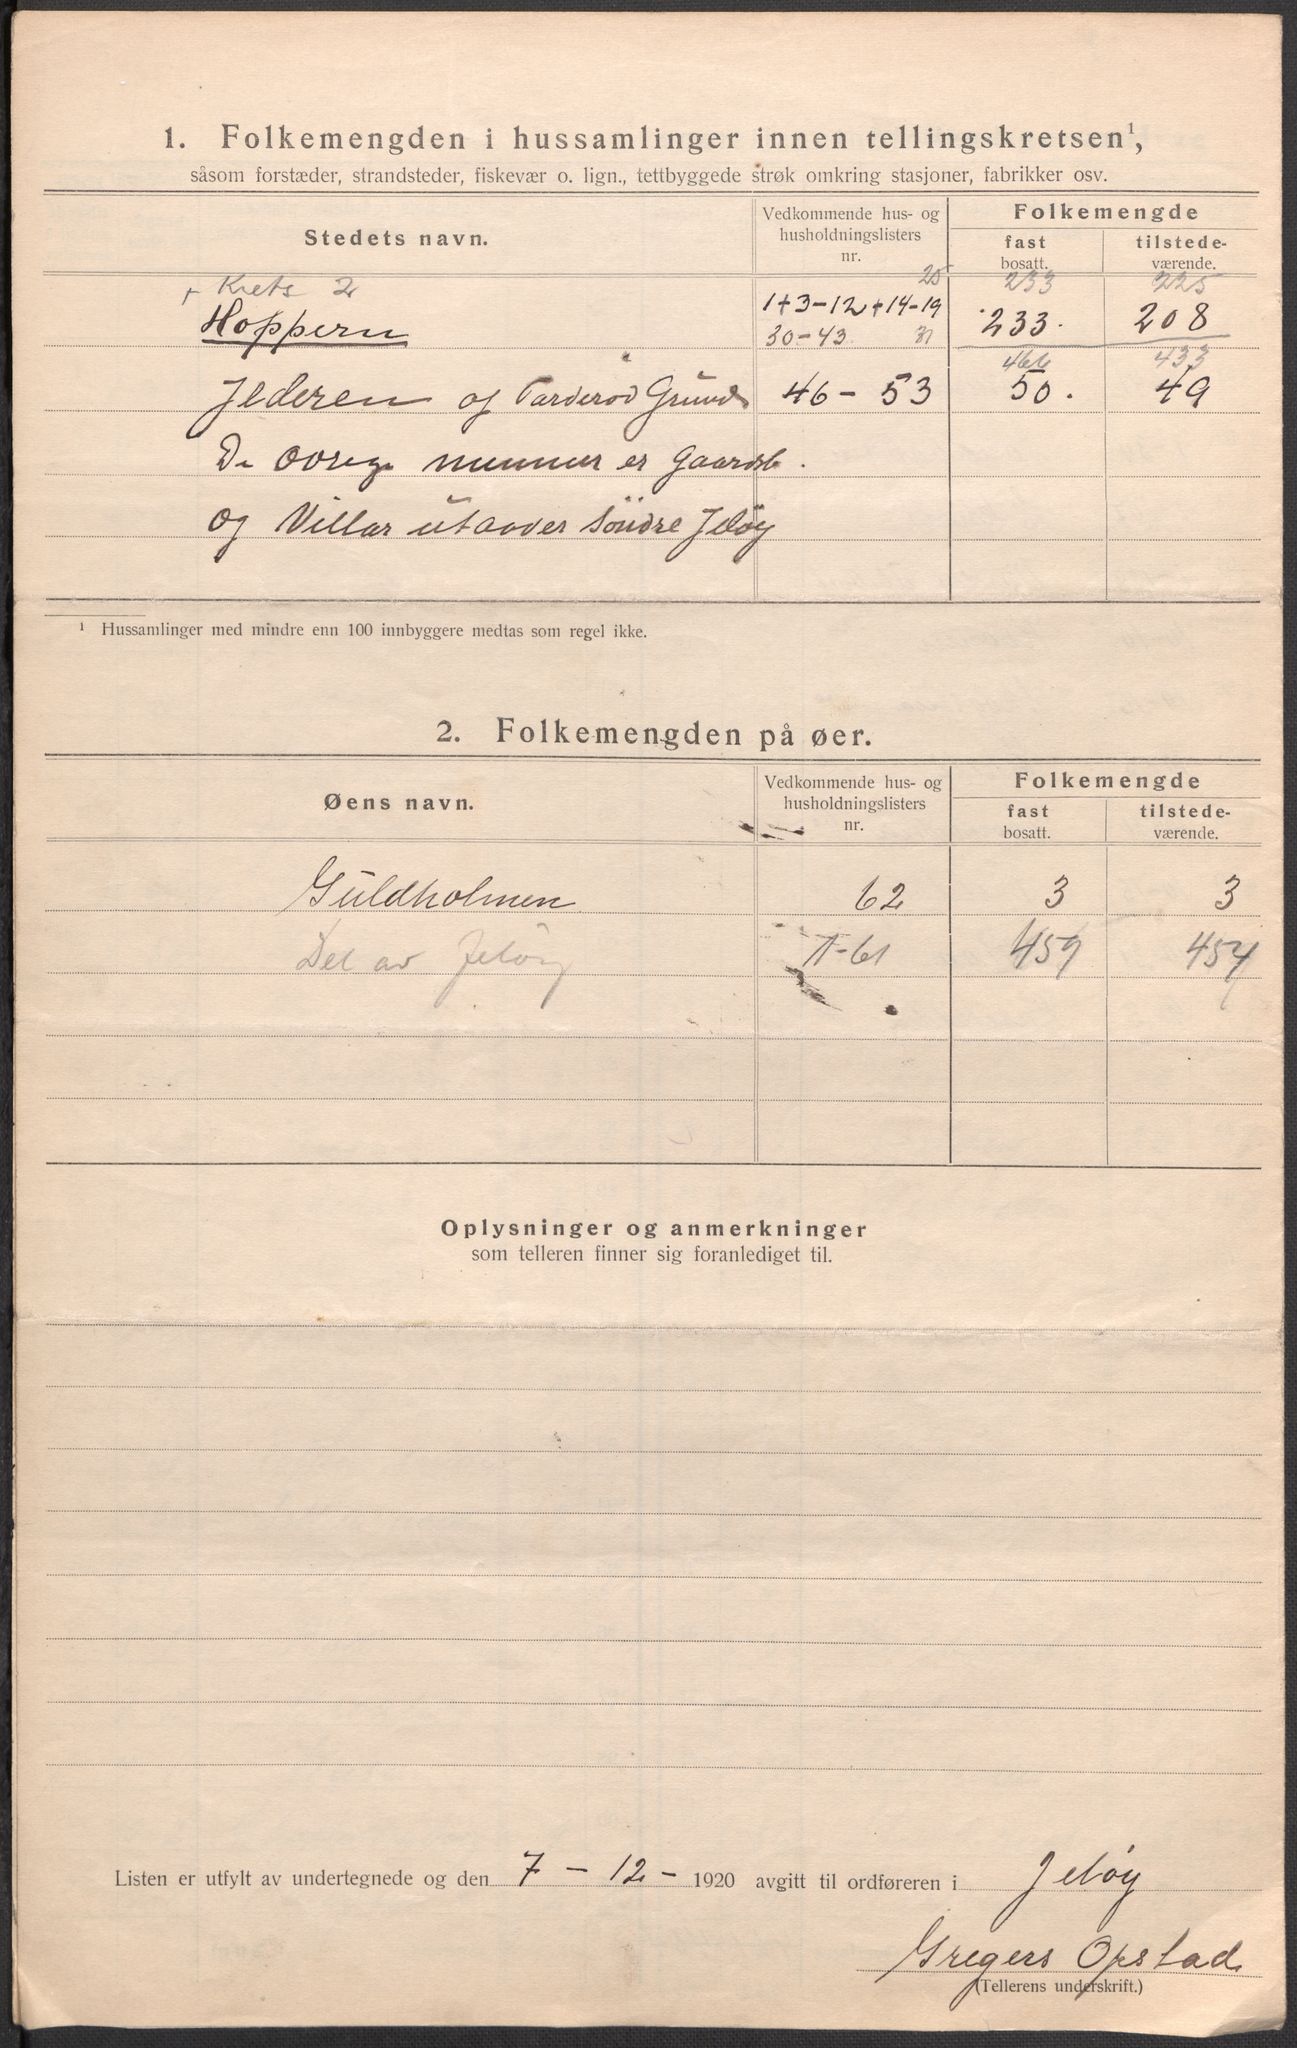 1. Folkemengden i hussamlinger innen tellingskretsen¹,
såsom forstæder, strandsteder, fiskevær o. lign., tettbyggede strøk omkring stasjoner, fabrikker osv.
Stedets navn.
Vedkommende hus- og husholdningslisters nr.
Folkemengde
fast bosatt.
tilstede-værende.
+ Krets 2 20 233 225
Hoppern 1+3-12+14-19 233. 208
30-43 31 466 433
Jlderen og Tarderød Grund 46 - 53 50. 49
De øvrige nummer er Gaardsb.
og Villar utover Söndre Jeløy
¹ Hussamlinger med mindre enn 100 innbyggere medtas som regel ikke.
2. Folkemengden på øer.
Øens navn.
Vedkommende hus- og husholdningslisters nr.
Folkemengde
fast bosatt.
tilstede-værende.
Guldholmen 62 3 3
Del av Jeløy 1-61 459 454
Oplysninger og anmerkninger
som telleren finner sig foranlediget til.
Listen er utfylt av undertegnede og den 7 - 12 - 1920 avgitt til ordføreren i Jeløy
Gregers Opstad
(Tellerens underskrift.)